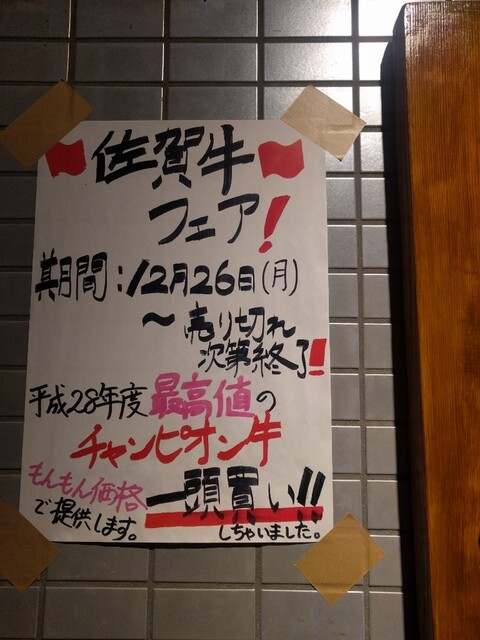 佐賀牛
フェア!
期月間:12月26日(月)
～売り切れ
次第終了!!
平成28年度最高値の
チャンピオン牛
一頭買い!!
しちゃいました。
もんもん価格
で提供します。